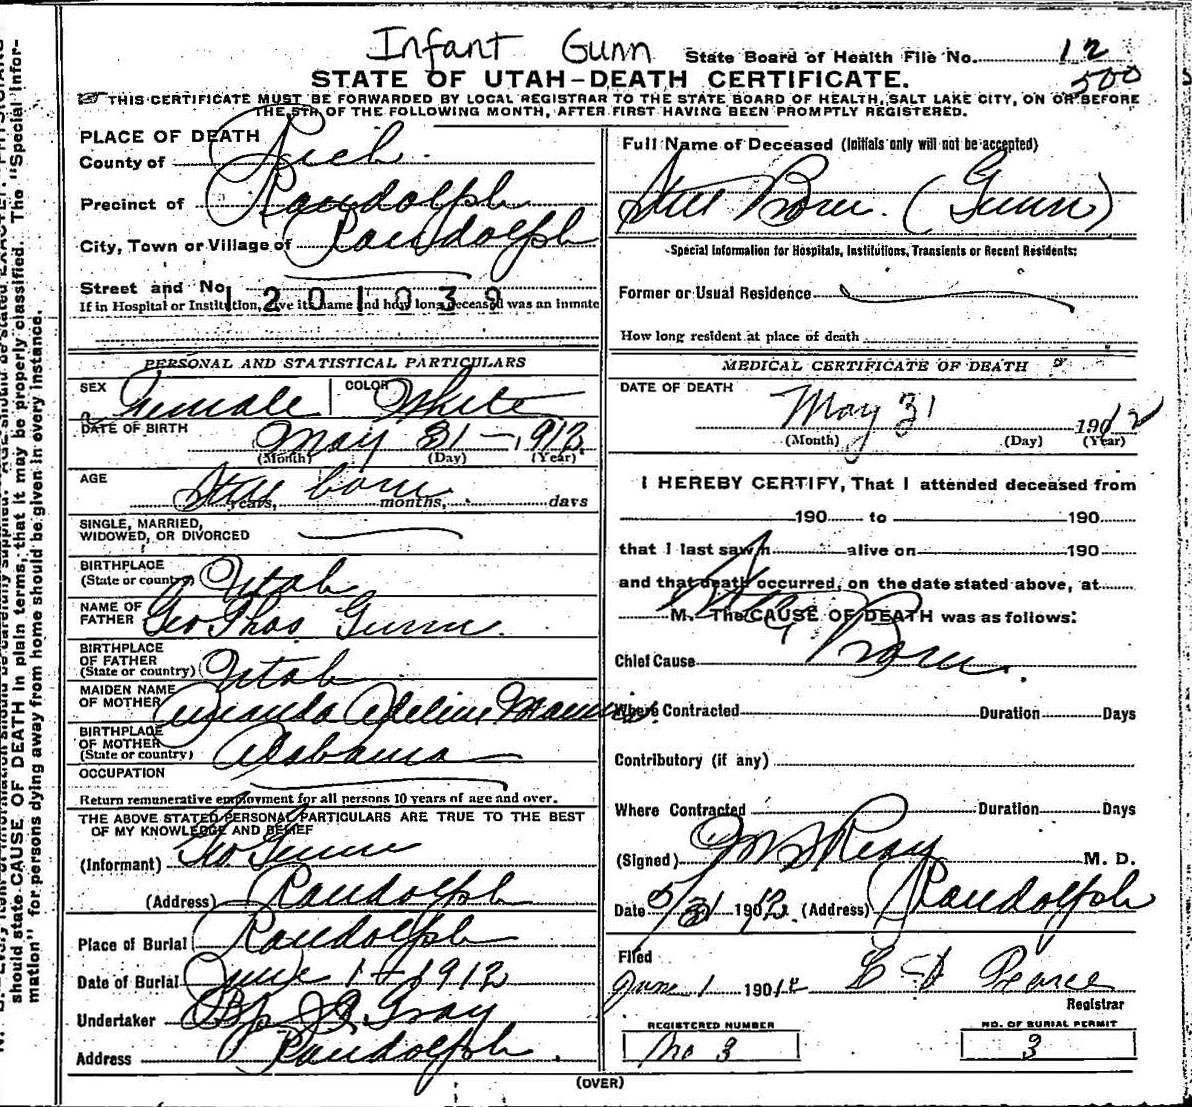 Infant Gunn State Board of Health File No. 12
500
STATE OF UTAH-DEATH CERTIFICATE.
THIS CERTIFICATE MUST BE FORWARDED BY LOCAL REGISTRAR TO THE STATE BOARD OF HEALTH, SALT LAKE CITY, ON OR BEFORE
THE 5TH OF THE FOLLOWING MONTH, AFTER FIRST HAVING BEEN PROMPTLY REGISTERED.
PLACE OF DEATH
County of Rich
Precinct of Randolph
City, Town or Village of Randolph
Street and No.
1201039
If in Hospital or Institution, give its name and how long deceased was an inmate
PERSONAL AND STATISTICAL PARTICULARS
SEX Female COLOR White
DATE OF BIRTH May 31 - 1912
(Month) (Day) (Year)
AGE Still born
years, months, days
SINGLE, MARRIED,
WIDOWED, OR DIVORCED
BIRTHPLACE
(State or country) Utah
NAME OF
FATHER Geo Thos Gunn
BIRTHPLACE
OF FATHER
(State or country) Utah
MAIDEN NAME
OF MOTHER Amanda Adeline
BIRTHPLACE
OF MOTHER
(State or country) Alabama
OCCUPATION
Return remunerative employment for all persons 10 years of age and over.
THE ABOVE STATED PERSONAL PARTICULARS ARE TRUE TO THE BEST
OF MY KNOWLEDGE AND BELIEF
(Informant) Geo Gunn
(Address) Randolph
Place of Burial Randolph
Date of Burial June 1st 1912
Undertaker Bp J C Gray
Address Randolph.
Full Name of Deceased (Initials only will not be accepted)
Still Born. (Gunn)
Special Information for Hospitals, Institutions, Transients or Recent Residents:
Former or Usual Residence
How long resident at place of death
MEDICAL CERTIFICATE OF DEATH
DATE OF DEATH
May 31 1912
(Month) (Day) (Year)
I HEREBY CERTIFY, That I attended deceased from
190 to 190
that I last saw h alive on 190
and that death occurred, on the date stated above, at
M. The CAUSE OF DEATH was as follows:
Still Born.
Chief Cause
Where Contracted Duration Days
Contributory (if any)
Where Contracted Duration Days
(Signed) M. D.
Date 5/31 1912. (Address) Randolph
Filed
June 1 1912 Pearce
Registrar
REGISTERED NUMBER
No 3
NO. OF BURIAL PERMIT
3
(OVER)
should state CAUSE OF DEATH in plain terms, that it may be properly classified. The "Special Infor-
mation" for persons dying away from home should be given in every instance.